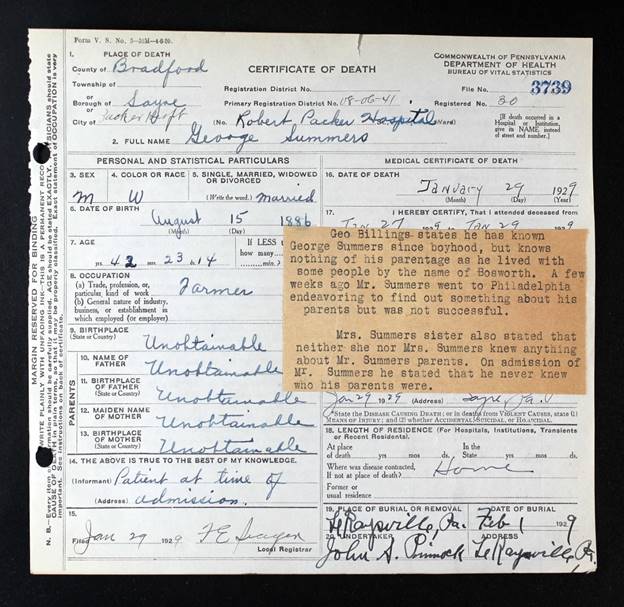 Form V. S. No. 5-50M-4-6-20.
1. PLACE OF DEATH
County of Bradford
Township of
or
Borough of Sayre
or
City of
CERTIFICATE OF DEATH
COMMONWEALTH OF PENNSYLVANIA
DEPARTMENT OF HEALTH
BUREAU OF VITAL STATISTICS
Registration District No.
File No. 3739
Primary Registration District No. 08-06-41
Registered No. 30
(No. Robert Packer Hospital Ward)
[If death occurred in a Hospital or Institution, give its NAME instead of street and number.]
2. FULL NAME George Summers
PERSONAL AND STATISTICAL PARTICULARS
3. SEX M
4. COLOR OR RACE W
5. SINGLE, MARRIED, WIDOWED OR DIVORCED
(Write the word.) Married
6. DATE OF BIRTH
August 15 1886
(Month) (Day)
7. AGE
IF LESS
how many
42 yrs. 5 mos. 14
8. OCCUPATION
(a) Trade, profession, or particular kind of work
Farmer
(b) General nature of industry, business, or establishment in which employed (or employer)
9. BIRTHPLACE
(State or Country) Unobtainable
PARENTS
10. NAME OF FATHER Unobtainable
11. BIRTHPLACE OF FATHER
(State or Country) Unobtainable
12. MAIDEN NAME OF MOTHER Unobtainable
13. BIRTHPLACE OF MOTHER
(State or Country) Unobtainable
14. THE ABOVE IS TRUE TO THE BEST OF MY KNOWLEDGE.
(Informant) Patient at time of
(Address) admission.
15.
Filed Jan 29 1929
Local Registrar
MEDICAL CERTIFICATE OF DEATH
16. DATE OF DEATH
January 29 1929
(Month) (Day) (Year)
17. I HEREBY CERTIFY, That I attended deceased from
Jan 27 1929 Jan 29 1929
Geo Billings states he has known
George Summers since boyhood, but knows
nothing of his parentage as he lived with
some people by the name of Bosworth. A few
weeks ago Mr. Summers went to Philadelphia
endeavoring to find out something about his
parents but was not successful.
Mrs. Summers sister also stated that
neither she nor Mrs. Summers knew anything
about Mr. Summers parents. On admission of
Mr. Summers he stated that he never knew
who his parents were.
Jan 29 1929 Sayre, Pa.
State the DISEASE CAUSING DEATH; or in deaths from VIOLENT CAUSES, state (1) MEANS OF INJURY; and (2) whether ACCIDENTAL, SUICIDAL, or HOMICIDAL.
18. LENGTH OF RESIDENCE (For Hospitals, Institutions, Transients or Recent Residents).
At place of death yrs. mos. days
In the State yrs. mos. days
Where was disease contracted, if not at place of death? Home
Former or usual residence
19. PLACE OF BURIAL OR REMOVAL
DATE OF BURIAL
LeRaysville, Pa. Feb 1 1929
20. UNDERTAKER
ADDRESS
John S. LeRaysville, Pa.
MARGIN RESERVED FOR BINDING
WRITE PLAINLY, WITH UNFADING INK—THIS IS A PERMANENT RECORD